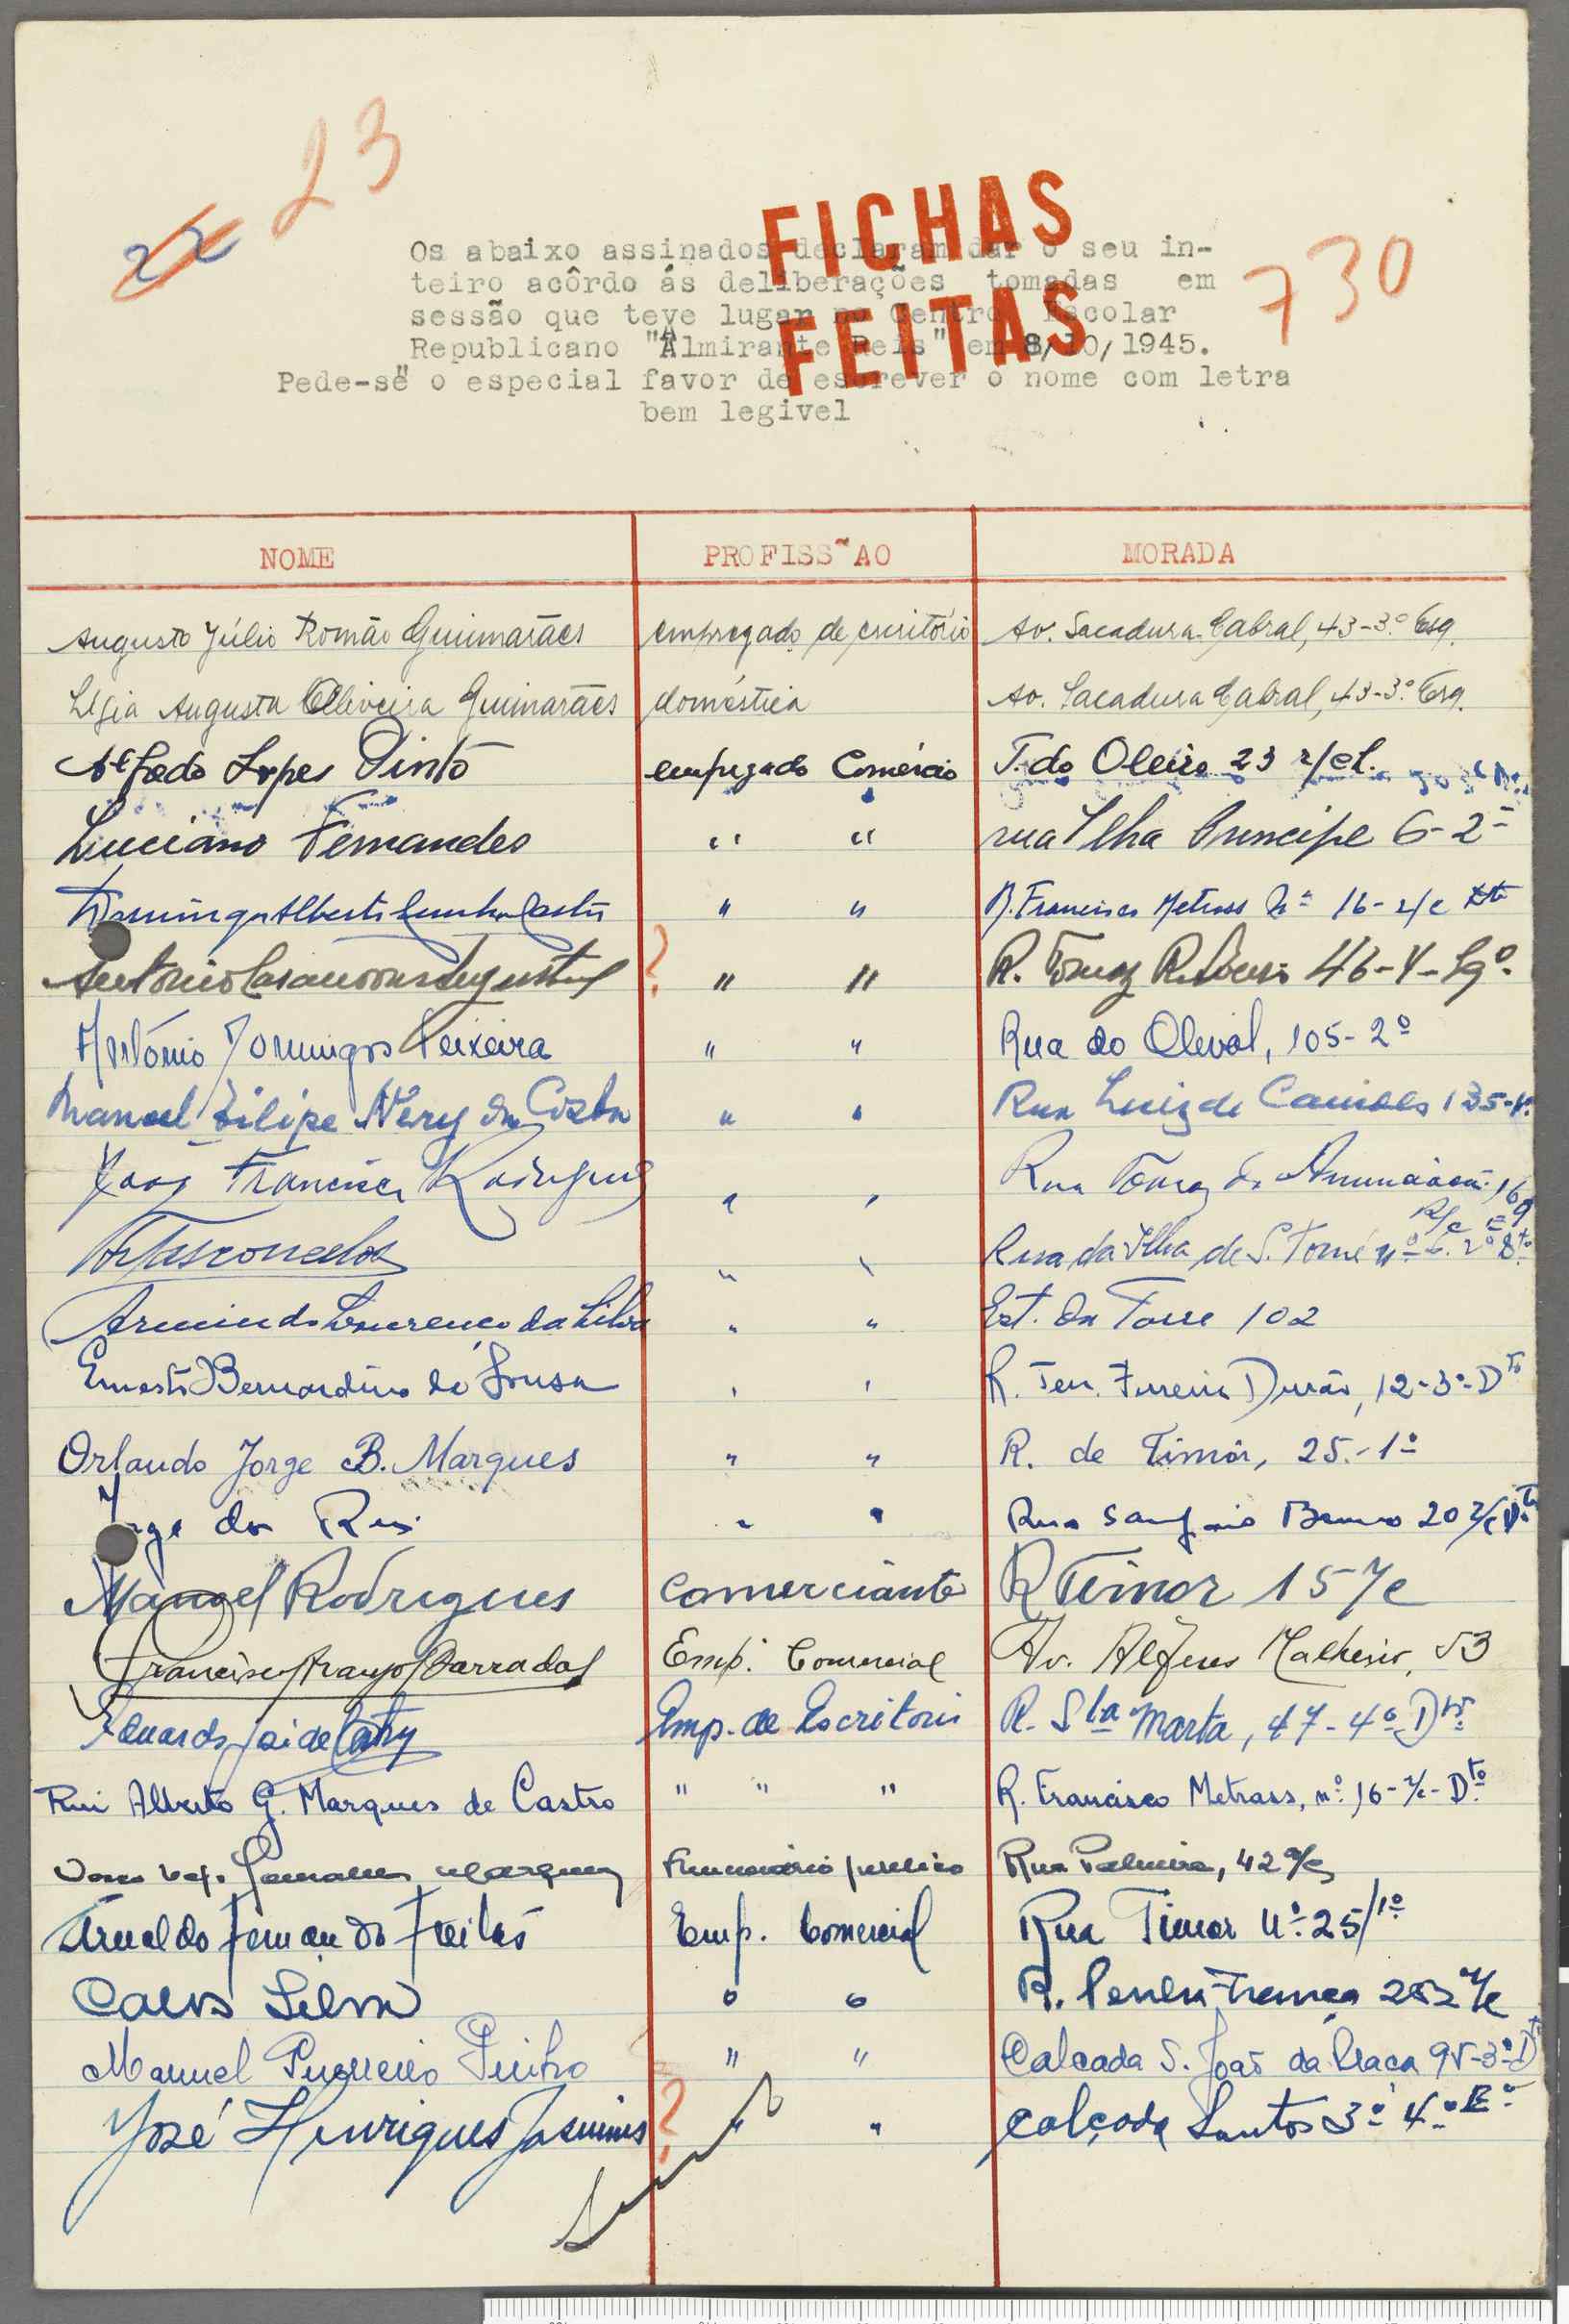 23
22
730
FICHAS
FEITAS
Os abaixo assinados declaram dar o seu in-
teiro acôrdo ás deliberações tomadas em
sessão que teve lugar no Centro Escolar
Republicano "Almirante Reis" em 8/10/1945.
Pede-se o especial favor de escrever o nome com letra
bem legivel
NOME PROFISS~AO MORADA
Augusto Júlio Romão Guimarães empregado de escritório Av. Sacadura Cabral, 43-3.º Esq.
Lígia Augusta Oliveira Guimarães doméstica Av. Sacadura Cabral, 43-3.º Esq.
Alfredo Lopes Pinto empregado Comércio T. do Oleiro 23 r/ch.
Luciano Fernandes " " rua Ilha Principe 6-2º
Domingos Alberto Cunha Castro " " R. Francisco Metrass Nº 16-r/c Dto
Antonio Casanovas Augusto ? " " R. Tomaz Ribeiro 46-4-Eqº.
António Domingos Teixeira " " Rua do Olival, 105-2º
Manoel Filipe Nery da Costa " " Rua Luiz de Camões 135-1º
João Francisco Rodrigues " " Rua Tomaz da Anunciação 169
R/c Eq
Vasconcelos " " Rua da Ilha de S. Tomé nº 6. 2º Dto
Armindo Lourenço da Silva " " Est. da Torre 102
Ernesto Bernardino de Sousa " " R. Ten. Ferreira Durão, 12-3º-Dto
Orlando Jorge B. Marques " " R. de Timôr, 25.-1º
Jorge dos Reis " " Rua Sampaio Bruno 20 r/c Dto
Manoel Rodrigues comerciante R Timor 15 r/c
Francisco Araujo Barradas Emp. Comercial Av. Alferes Malheiro, 53
Eduardo José de Castro Emp. de Escritorio R. Sta Marta, 47-4º Dto
Rui Alberto G. Marques de Castro " " " R. Francisco Metrass, nº 16-r/c-Dto
Vasco Gonçalves Marques Funcionário publico Rua Palmira, 42 r/c
Arnaldo Fernando Freitas Emp. Comercial Rua Timor nº 25/1º
Carlos Silva " " R. Penha França 252 r/c
Manuel Pinheiro " " Calçada S. João da Praça 95-3º-Dto
José Henriques Jasmins ? " " Calçada Santos 3º 4º Eº